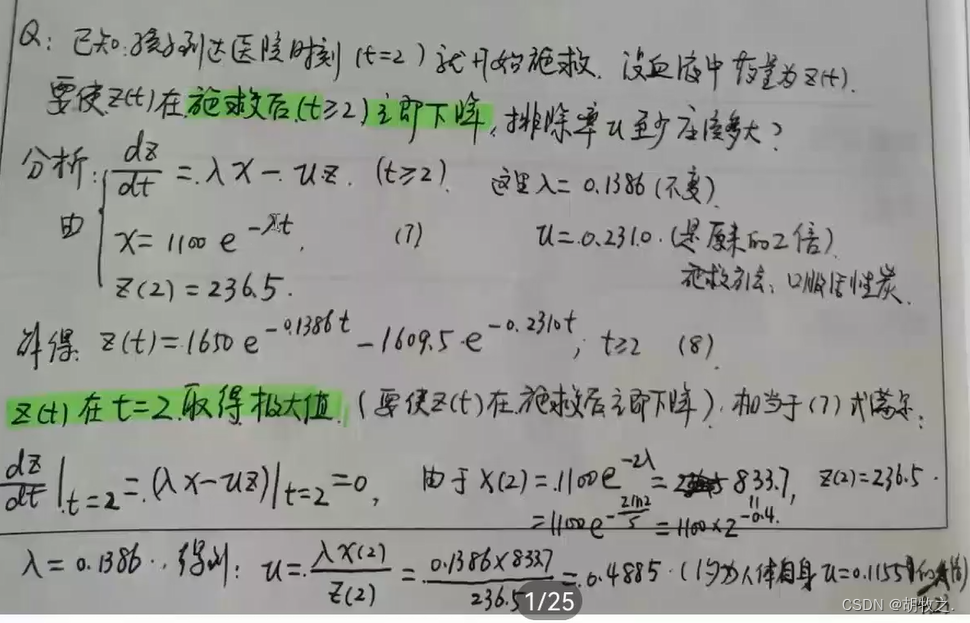 Q: 已知孩子到达医院时刻(t=2)就开始施救. 设血液中药量为z(t).
要使z(t)在施救后(t≥2)立即下降, 排除率u至少应该多大?
分析: dz/dt = λx - uz. (t≥2). 这里λ= 0.1386 (不变).
由 x= 1100 e^{-λt}. (7) u=0.2310. (是原来的2倍)
z(2) = 236.5. 施救方法: 口服活性炭.
解得: z(t) = 1650 e^{-0.1386t} - 1609.5 e^{-0.2310t}; t≥2 (8)
z(t) 在 t=2 取得极大值 (要使z(t)在施救后立即下降). 相当于(7)式满足:
dz/dt|_{t=2} = (λx-uz)|_{t=2} = 0, 由于 x(2) = 1100e^{-2λ} = 833.7, z(2)=236.5.
= 1100 e^{-2ln2/5} = 1100×2^{-0.4}.
λ = 0.1386.. 得到: u = λx(2)/z(2) = 0.1386×833.7/236.5 = 0.4885. (约为人体自身u=0.1155的
1/25
CSDN @胡牧之.